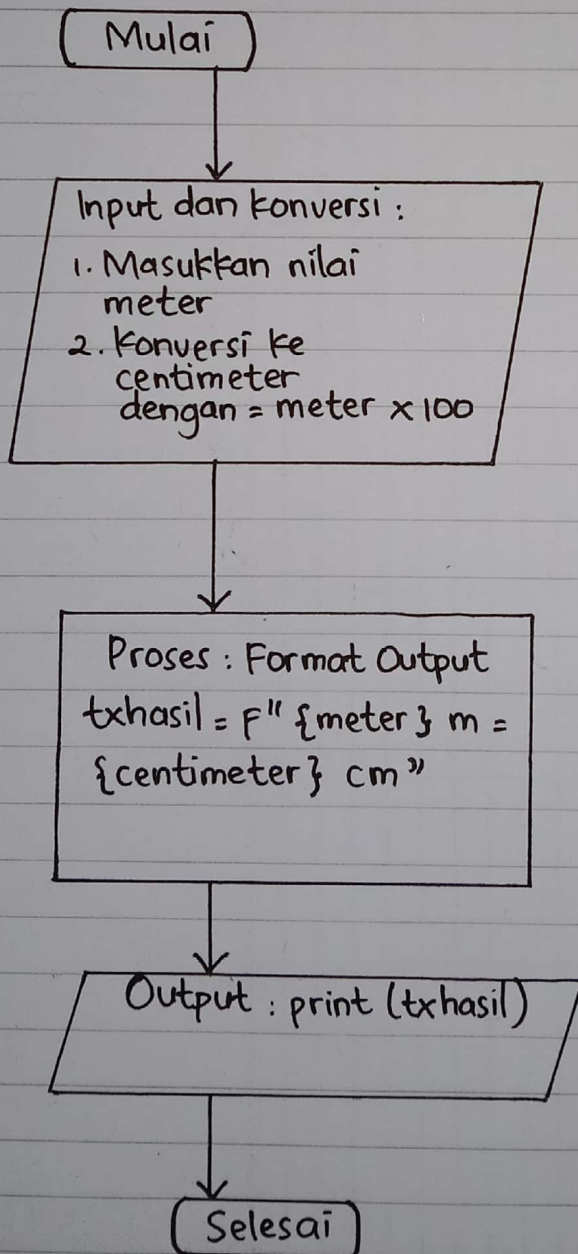 Mulai
Input dan konversi :
1. Masukkan nilai
meter
2. Konversi ke
centimeter
dengan = meter x 100
Proses : Format Output
txhasil = F" {meter} m =
{centimeter} cm"
Output : print (txhasil)
Selesai